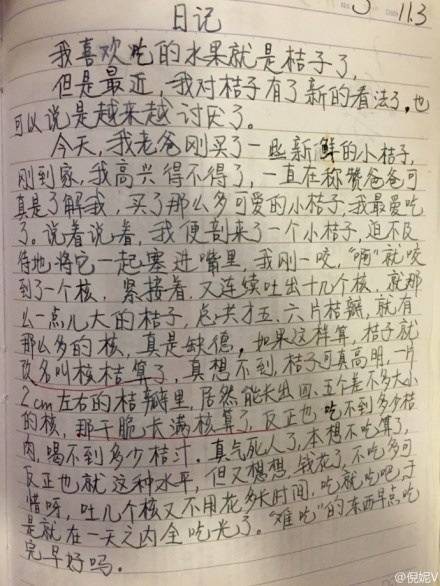 No. 3 Date 11.3
日记
我喜欢吃的水果就是桔子了,
但是最近,我对桔子有了新的看法了,也
可以说是越来越讨厌了。
今天,我老爸刚买了一些新鲜的小桔子,
刚到家,我高兴得不得了,一直在称赞爸爸可
真是了解我,买了那么多可爱的小桔子,我最爱吃
了。说着说着,我便剖来了一个小桔子,迫不及
待地将它一起塞进嘴里,我刚一咬,“啊”就咬
到了一个核,紧接着,又连续吐出十几个核,就那
么一点儿大的桔子,总共才五、六片桔瓣,就有
那么多的核,真是缺德,如果这样算,桔子就
改名叫核桔算了,真想不到,桔子可真高明,一片
2cm左右的桔瓣里,居然能长出四、五个差不多大小
的核,那干脆长满核算了,反正也吃不到多少桔
肉,喝不到多少桔汁,真气死人了,本想不吃算了,
反正也就这种水平,但又想想,钱花了,不吃多可
惜呀,吐几个核又不用花多长时间,吃就吃吧,于
是就在一天之内全吃光了。“难吃”的东西早点吃
完早好吗。
@倪妮V